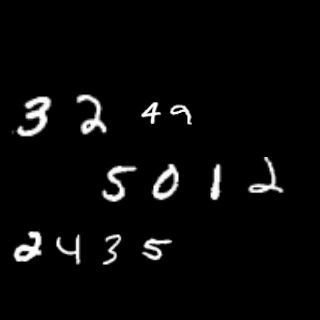 32 49
5012
2435